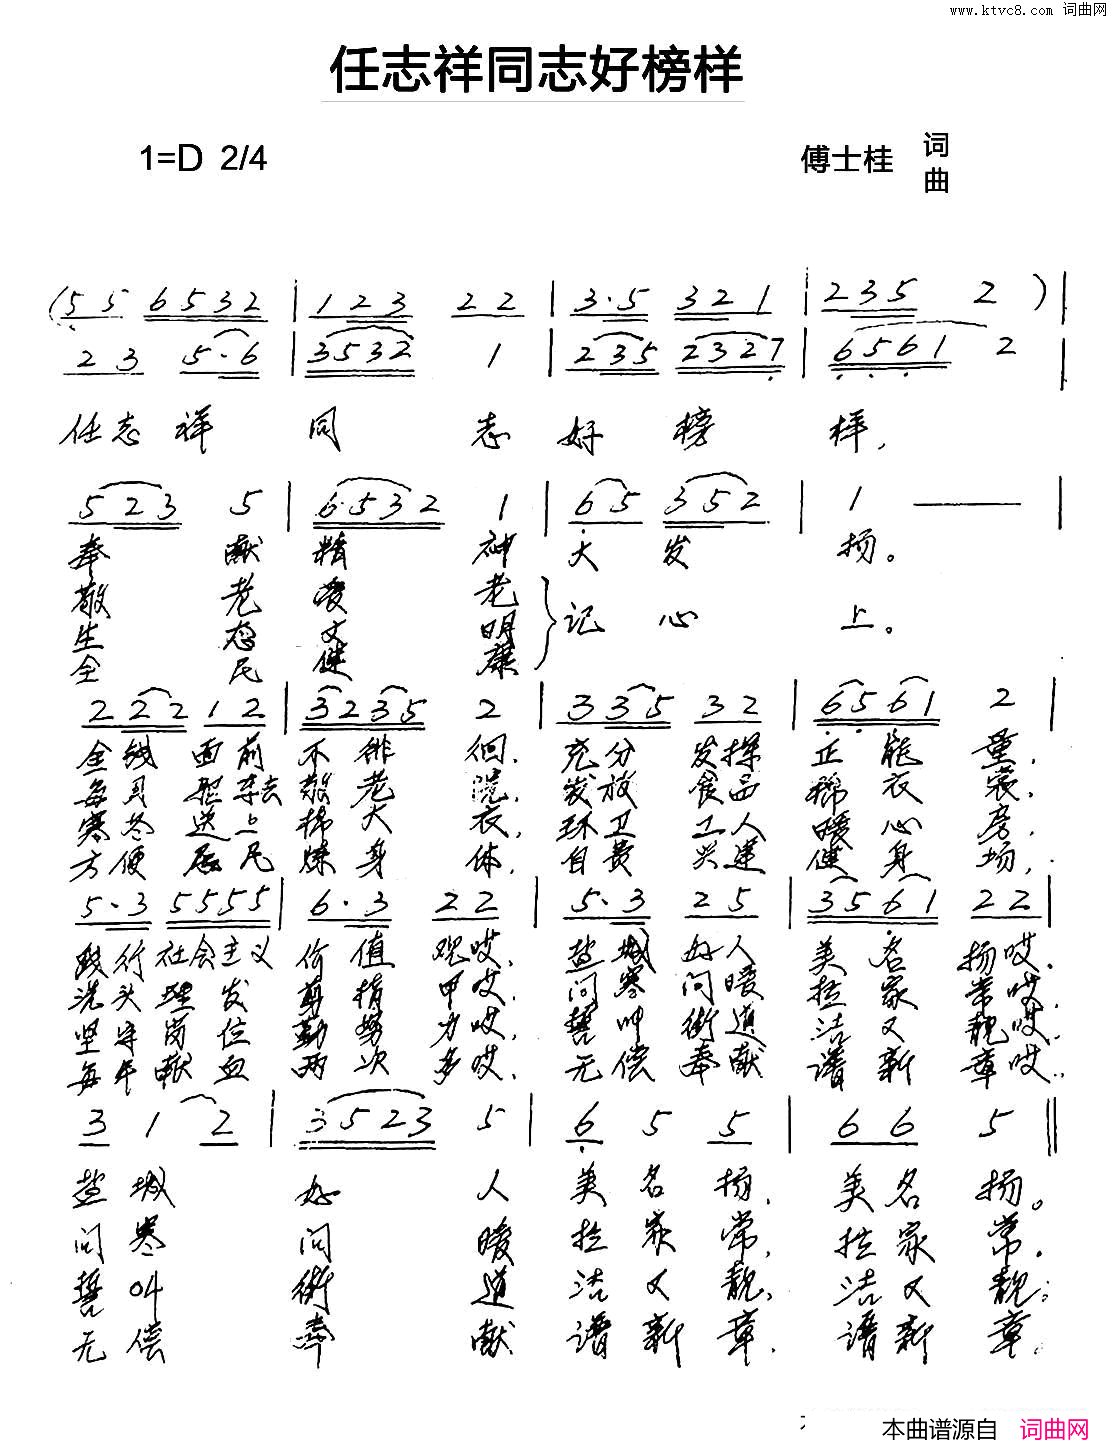 www.ktvc8.com 词曲网
任志祥同志好榜样
1=D 2/4
傅士桂 词
曲
(5 5 6532 | 1 23 22 | 3·5 32 1 | 235 2 ) |
23 5·6 | 3532 1 | 235 2327 | 6561 2 |
任志祥 同 志 好 榜 样,
523 5 | 6·532 1 | 65 352 | 1 — |
奉 献 精 神 大 发 扬。
敬 老 爱 老
记 心 上。
生 态 文 明
全 民 健 康
222 12 | 3235 2 | 335 32 | 6561 2 |
全线 面前 不徘徊, 充分 发挥 正能量,
每月 敬老院, 发放 食品 棉衣裳,
寒冬 送上 棉大衣, 环卫 工人 暖心房,
方便 居民 炼身体, 自费 兴建 健身场,
5·3 5555 | 6·3 22 | 5·3 25 | 3561 22 |
践行社会主义 价值 观哎, 盐城 好人 美名 扬哎.
洗头理发 剪指 甲哎, 问寒 问暖 拉家 常哎.
坚守岗位 勤努 力哎, 誓叫 街道 洁又 靓哎.
每年献血 两次 多哎, 无偿 奉献 谱新 章哎.
3 1 2 | 3523 5 | 6 5 5 | 6 6 5 ‖
盐城 好 人 美名 扬, 美名 扬。
问寒 问 暖 拉家 常, 拉家 常.
誓叫 街 道 洁又 靓, 洁又 靓.
无偿 奉 献 谱新 章, 谱新 章.
本曲谱源自 词曲网